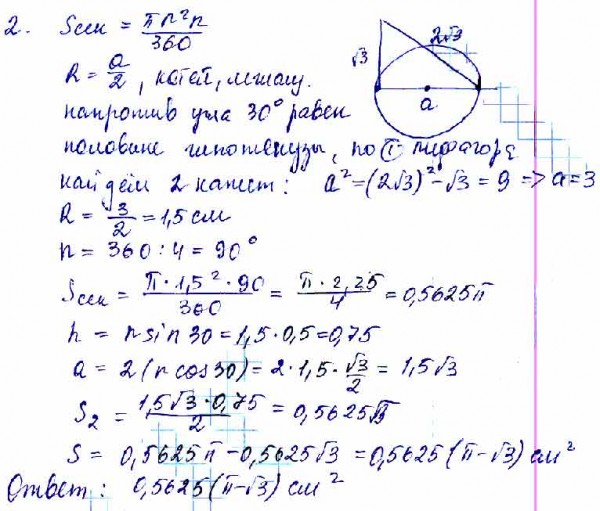 2. Sсек = πR²n/360
√3 2√3 a
R = a/2, катет, лежащ.
напротив угла 30° равен
половине гипотенузы, по т. Пифагора
найдём 2 катет: a² = (2√3)² - √3 = 9 => a = 3
R = 3/2 = 1,5 см
n = 360 : 4 = 90°
Sсек = π · 1,5² · 90/360 = π · 2,25/4 = 0,5625π
h = r sin 30 = 1,5 · 0,5 = 0,75
a = 2(r cos 30) = 2 · 1,5 · √3/2 = 1,5√3
S₂ = 1,5√3 · 0,75/2 = 0,5625√3
S = 0,5625π - 0,5625√3 = 0,5625(π-√3) см²
Ответ: 0,5625(π-√3) см²